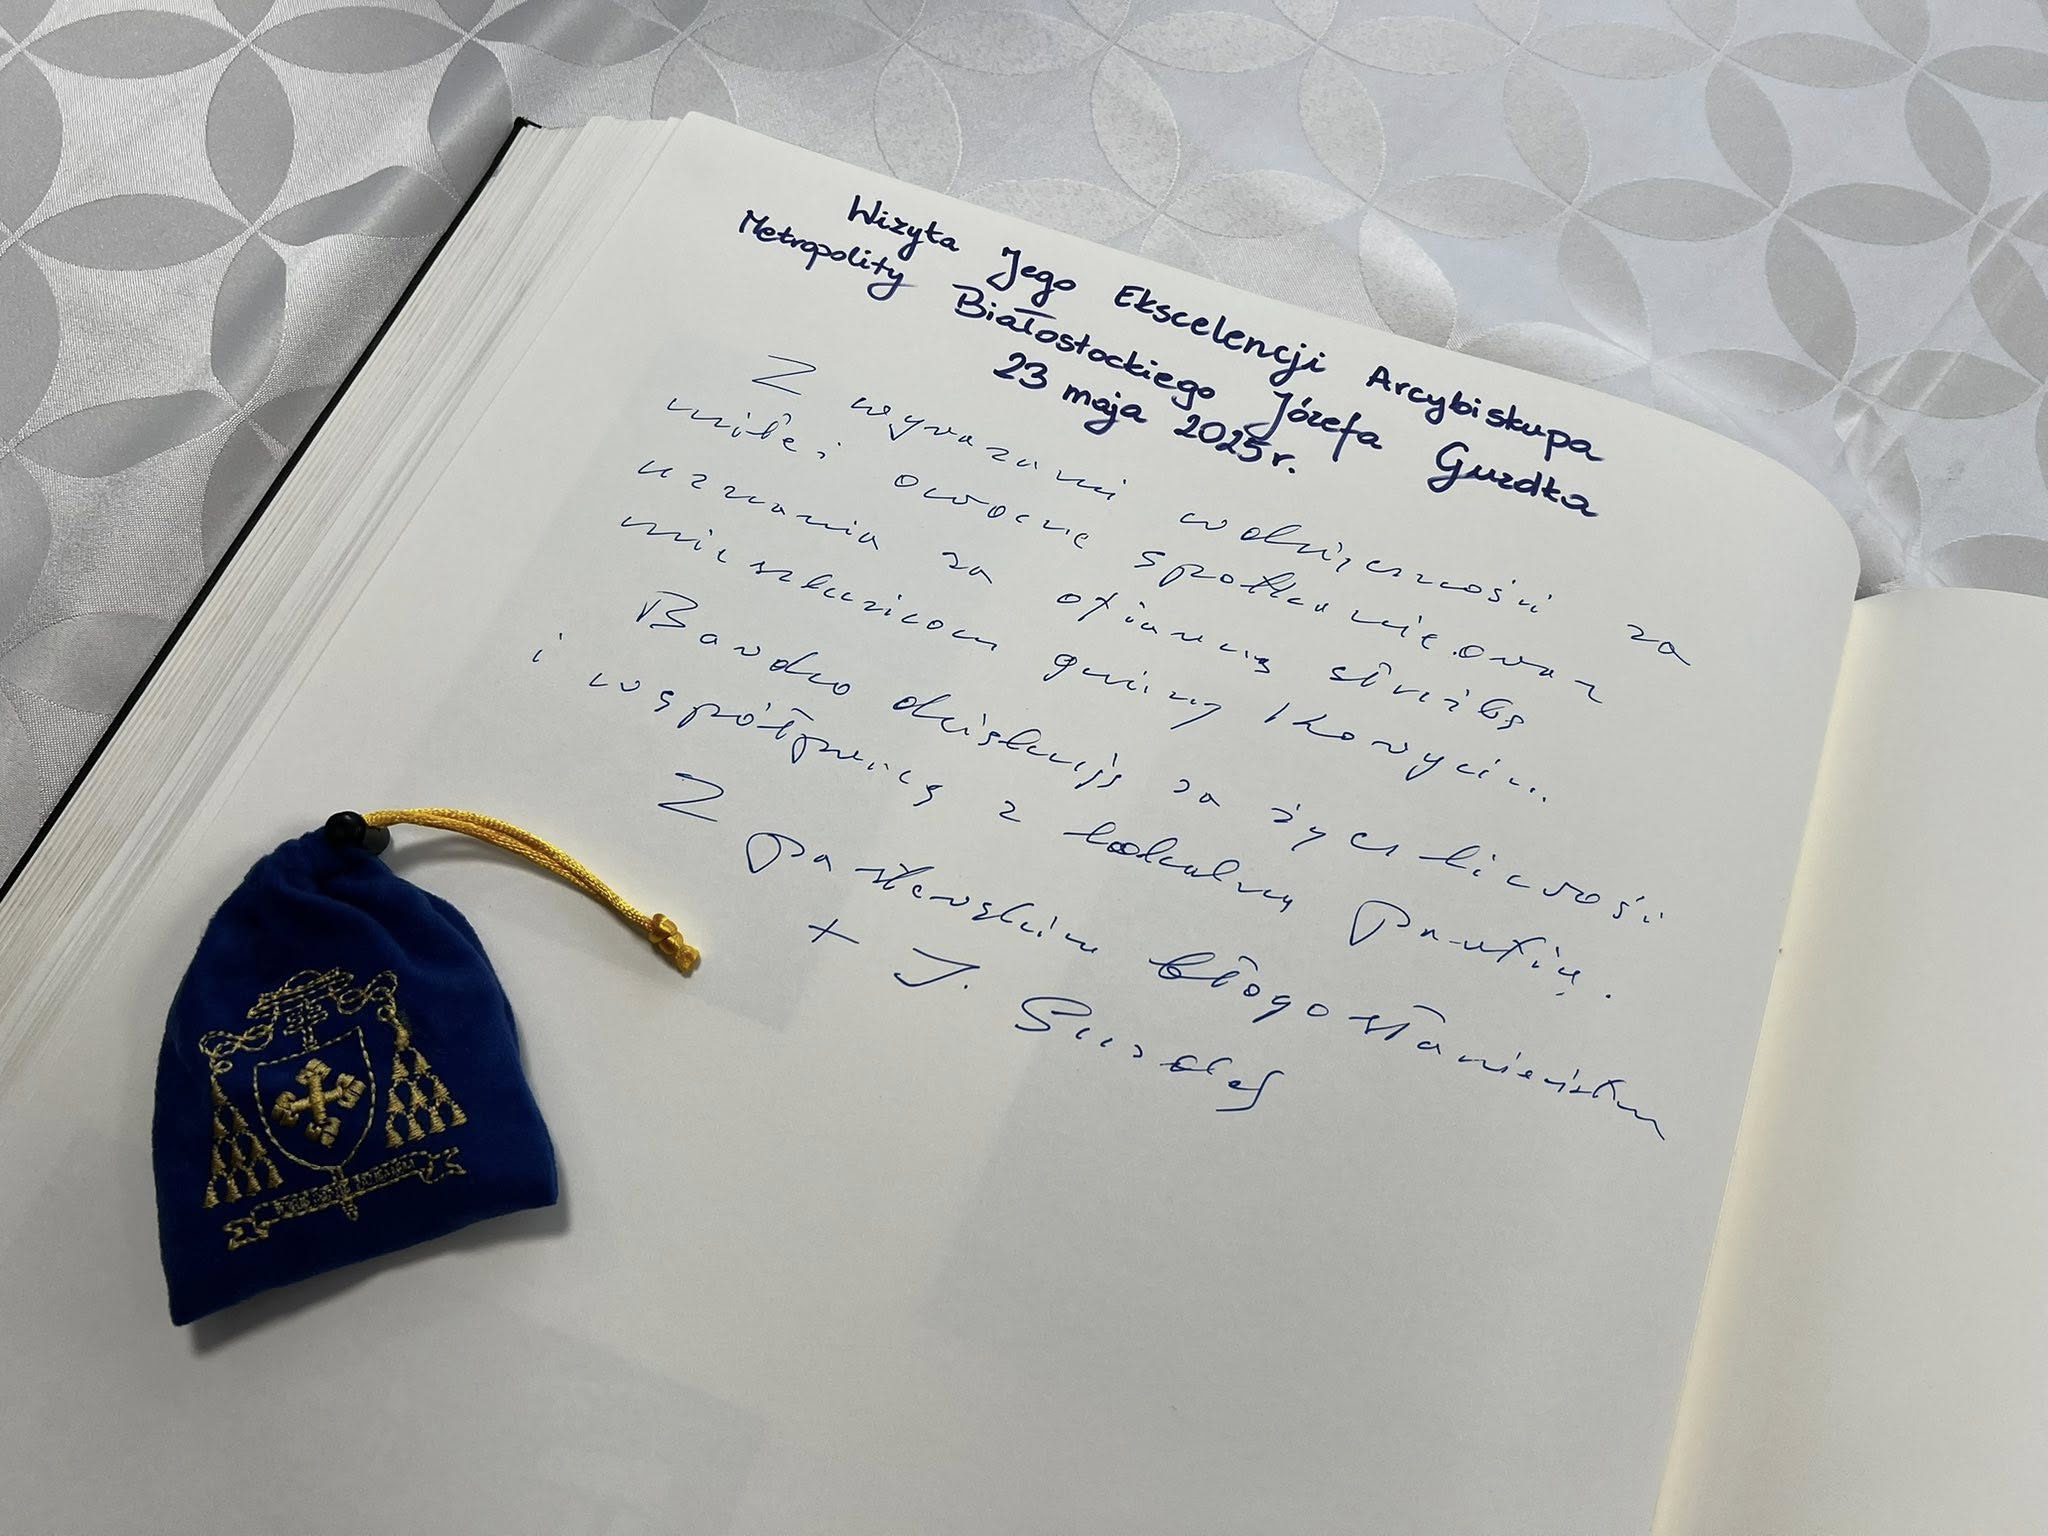 Wizyta Jego Ekscelencji Arcybiskupa
Metropolity Białostockiego Józefa Guzdka
23 maja 2025r.
Z wyrazami wdzięczności za
miłe i owocne spotkanie oraz
uznania za ofiarną służbę
mieszkańcom gminy Korycin.
Bardzo dziękuję za życzliwość
i współpracę z lokalną Parafią.
Z pasterskim błogosławieństwem
+ J. Guzdek